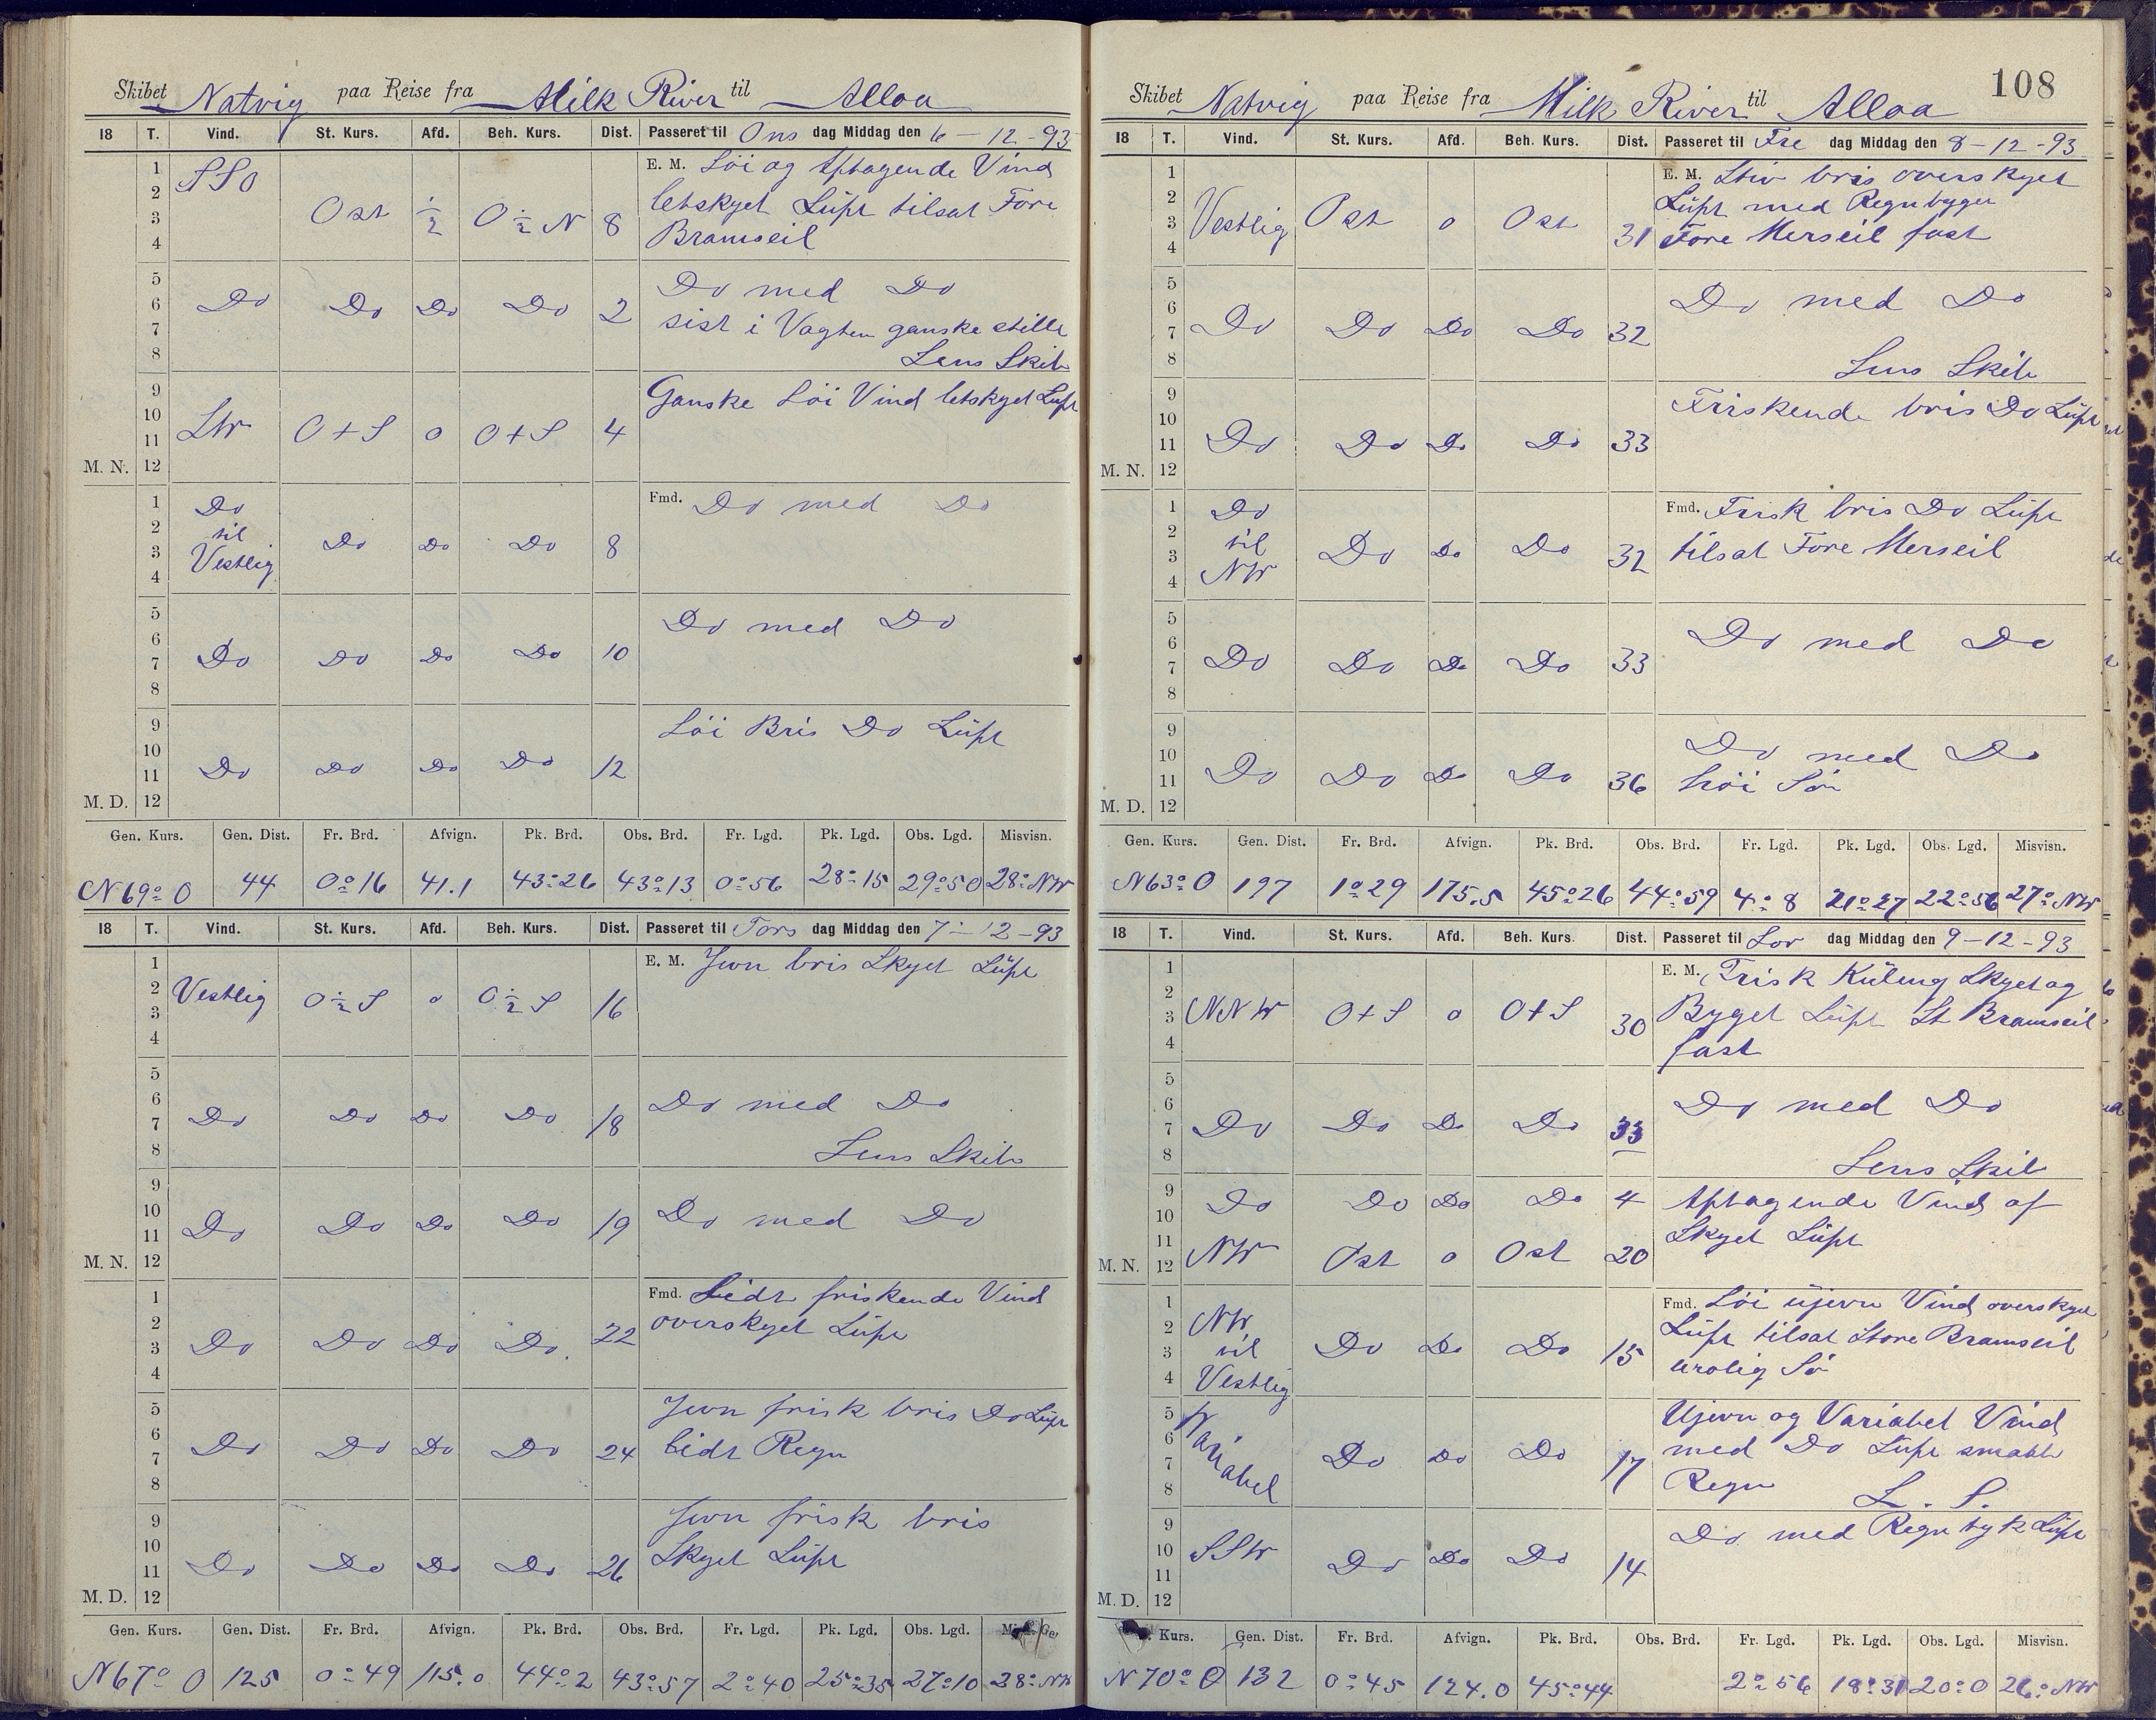 Skibet Natvig paa Reise fra Milk River til Alloa
18 T. Vind. St. Kurs. Afd. Beh. Kurs. Dist. Passeret til Ons dag Middag den 6-12-93
1 2 3 4 SSO Ost ½ O½N 8 E. M. Löi og Aftagende Vind
letskyet Luft tilsat Fore
Bramseil
5 6 7 8 Do Do Do Do 2 Do med Do
sist i Vagten ganske stille
Lens Skib
9 10 11 M. N. 12 StW O+S o O+S 4 Ganske Löi Vind letskyet Luft
1 2 3 4 Do til Vestlig Do Do Do 8 Fmd. Do med Do
5 6 7 8 Do Do Do Do 10 Do med Do
9 10 11 M. D. 12 Do Do Do Do 12 Löi Bris Do Luft
Gen. Kurs. Gen. Dist. Fr. Brd. Afvign. Pk. Brd. Obs. Brd. Fr. Lgd. Pk. Lgd. Obs. Lgd. Misvisn.
N69°O 44 0°16 41.1 43°26 43°13 0°56 28°15 29°50 28°NW
18 T. Vind. St. Kurs. Afd. Beh. Kurs. Dist. Passeret til Tors dag Middag den 7-12-93
1 2 3 4 Vestlig O½S o O½S 16 E. M. Jevn bris Skyet Luft
5 6 7 8 Do Do Do Do 18 Do med Do
Lens Skib
9 10 11 M. N. 12 Do Do Do Do 19 Do med Do
1 2 3 4 Do Do Do Do 22 Fmd. Lidt friskende Vind
overskyet Luft
5 6 7 8 Do Do Do Do 24 Jevn frisk bris Do Luft
lidt Regn
9 10 11 M. D. 12 Do Do Do Do 26 Jevn frisk bris
Skyet Luft
Gen. Kurs. Gen. Dist. Fr. Brd. Afvign. Pk. Brd. Obs. Brd. Fr. Lgd. Pk. Lgd. Obs. Lgd.
N67°O 125 0°49 115.0 44°2 43°57 2°40 25°35 27°10 28°NW
108
Skibet Natvig paa Reise fra Milk River til Alloa
18 T. Vind. St. Kurs. Afd. Beh. Kurs. Dist. Passeret til Fre dag Middag den 8-12-93
1 2 3 4 Vestlig Ost o Ost 31 E. M. Stiv bris overskyet
Luft med Regnbyger
Fore Merseil fast
5 6 7 8 Do Do Do Do 32 Do med Do
Lens Skib
9 10 11 M. N. 12 Do Do Do Do 33 Friskende bris Do Luft
1 2 3 4 Do til NW Do Do Do 32 Fmd. Frisk bris Do Luft
tilsat Fore Merseil
5 6 7 8 Do Do Do Do 33 Do med Do
9 10 11 M. D. 12 Do Do Do Do 36 Do med Do
höi Sö
Gen. Kurs. Gen. Dist. Fr. Brd. Afvign. Pk. Brd. Obs. Brd. Fr. Lgd. Pk. Lgd. Obs. Lgd. Misvisn.
N63°O 197 1°29 175.5 45°26 44°59 4°8 21°27 22°56 27°NW
18 T. Vind. St. Kurs. Afd. Beh. Kurs. Dist. Passeret til Lör dag Middag den 9-12-93
1 2 3 4 NNW O+S o O+S 30 E. M. Frisk Kuling Skyet og
Byget Luft St Bramseil
fast
5 6 7 8 Do Do Do Do 33 Do med Do
Lens Skib
9 10 Do Do Do Do 4 Aftagende Vind af
11 M. N. 12 NW Ost o Ost 20 Skyet Luft
1 2 3 4 NW til Vestlig Do Do Do 15 Fmd. Löi ujevn Vind overskyet
Luft tilsat Store Bramseil
urolig Sö
5 6 7 8 Variabel Do Do Do 17 Ujevn og Variabel Vind
med Do Luft smaat
Regn L. S.
9 10 11 M. D. 12 SSW Do Do Do 14 Do med Regntyk Luft
Kurs. Gen. Dist. Fr. Brd. Afvign. Pk. Brd. Obs. Brd. Fr. Lgd. Pk. Lgd. Obs. Lgd. Misvisn.
N70°O 132 0°45 124.0 45°44 2°56 18°31 20°0 26°NW